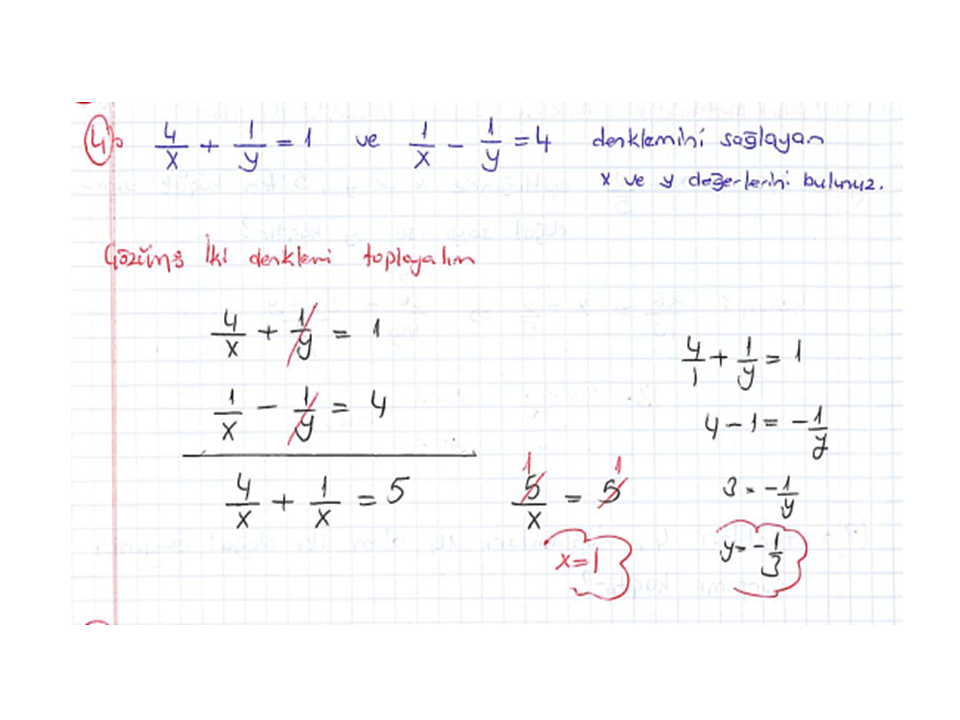 4) 4/x + 1/y = 1 ve 1/x - 1/y = 4 denklemini sağlayan
x ve y değerlerini bulunuz.
Çözüm: İki denklemi toplayalım
4/x + 1/y = 1
1/x - 1/y = 4
4/x + 1/x = 5
1 1
5/x = 5
x=1
4/1 + 1/y = 1
4-1 = -1/y
3 = -1/y
y = -1/3